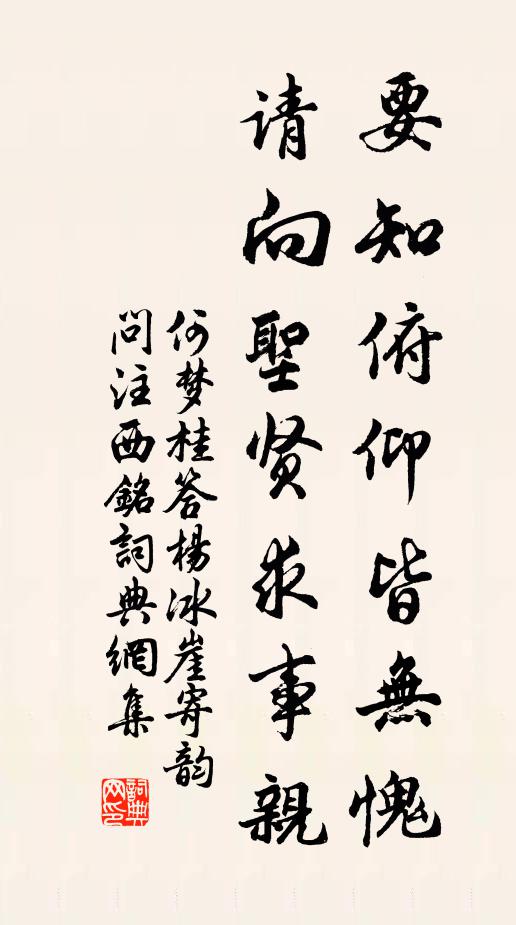 要知俯仰皆無愧
请向聖贤求事親
何梦桂答楊冰崖寄韵
問注西銘詞典網集
詞典网印